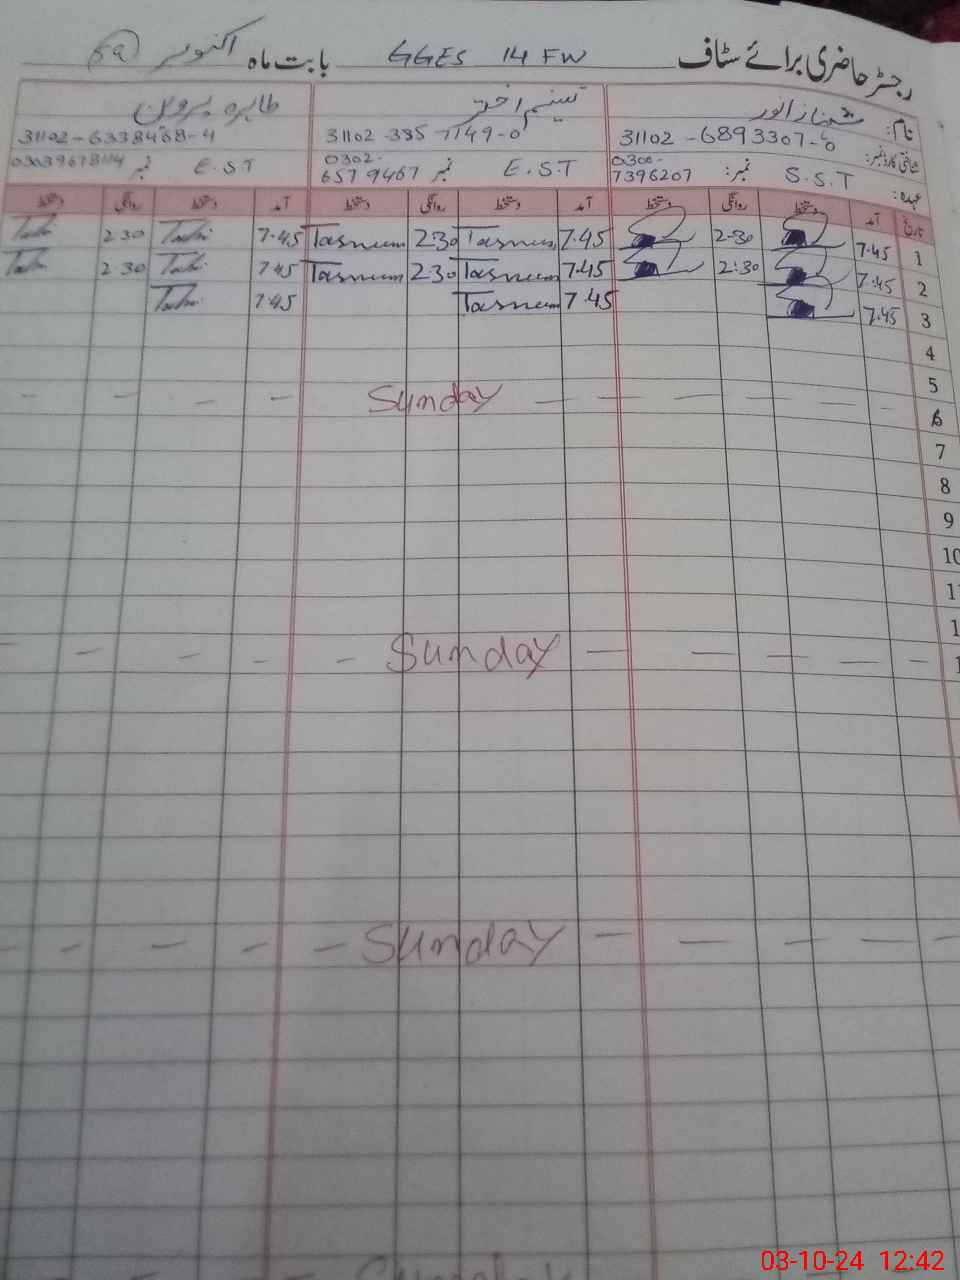 رجسٹر حاضری برائے سٹاف GGES 14 FW بابت ماہ اکتوبر
نام: شہناز انور تسنیم اختر طاہرہ پروین
شناختی کارڈ نمبر: 31102-6893307-6 31102-385 7149-0 31102-6338468-4
عہدہ: S.S.T نمبر: 0300-7396207 E.S.T نمبر 0302-657 9467 E.S.T نمبر
تاریخ آمد دستخط روانگی دستخط آمد دستخط روانگی دستخط آمد دستخط روانگی دستخط
1 7.45 2-30 7.45 Tasneem 2.30 Tasneem 7.45 2.30
2 7.45 2:30 7.45 Tasneem 2.30 Tasneem 7.45 2.30
3 7.45 7.45 Tasneem 7.45
4
5
6 - - - - - - Sunday - - - -
7
8
9
10
Sunday
Sunday
03-10-24 12:42